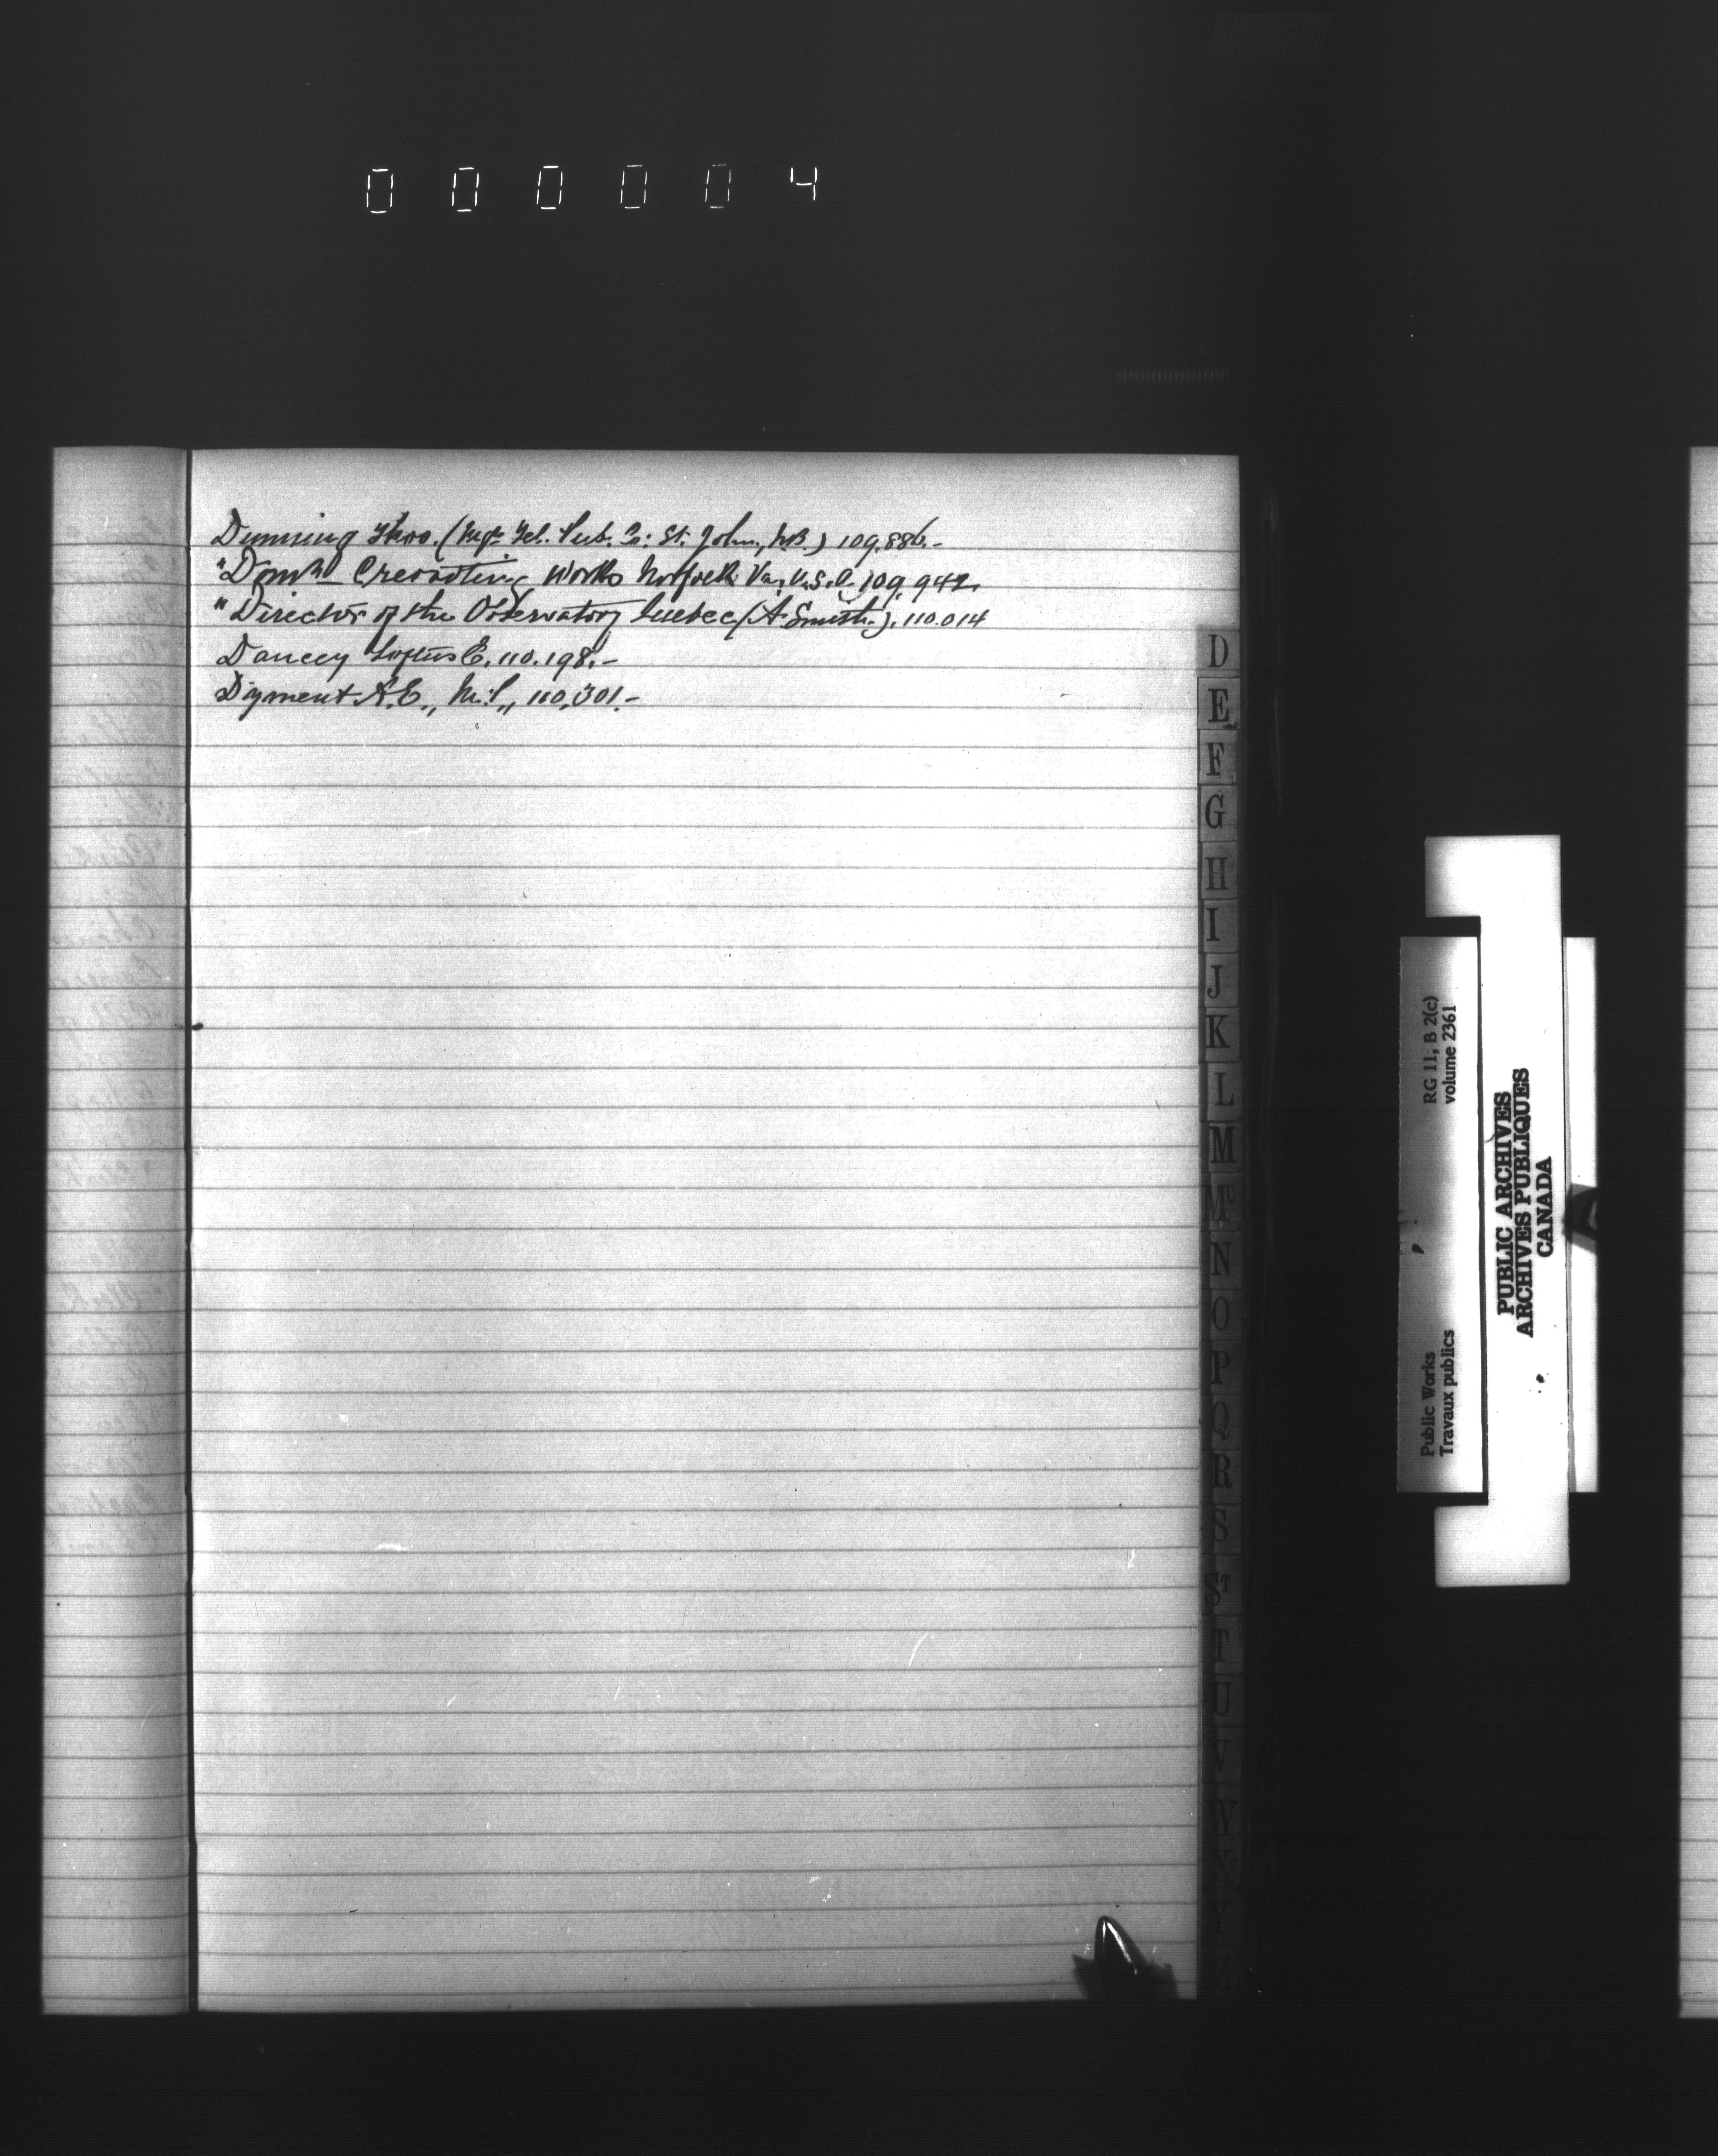 000004
Dunning Thos. (Mgr. Tel. Pub. Co: St. John, N.B.) 109.886.-
"Dom'n Creosoting Works Norfolk Va., U.S.A.) 109.942.
"Director of the Observatory Quebec (A Smith.). 110.014
Dancey Loftus E. 110.198.-
Dyment A.E., M.P., 110,301.-
D
E
F
G
H
I
J
K
L
M
Mc
N
O
P
Q
R
S
ST
T
U
V
W
X
Y
Z
RG 11, B 2(c)
volume 2361
Public Works
Travaux publics
PUBLIC ARCHIVES
ARCHIVES PUBLIQUES
CANADA